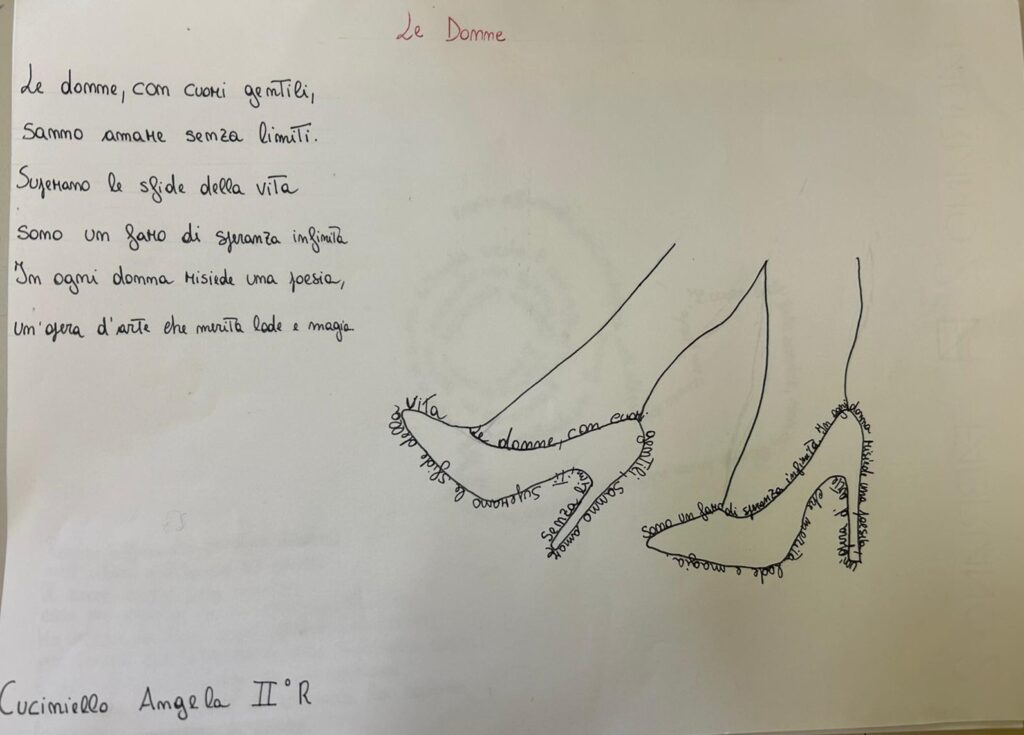 Le Donne
Le donne, con cuori gentili,
Sanno amare senza limiti.
Superano le sfide della vita
Sono un faro di speranza infinita
In ogni donna risiede una poesia,
un'opera d'arte che merita lode e magia
Le donne, con cuori
gentili, Sanno amare
Senza limiti
Superano le sfide della
vita
Sono un faro di speranza infinita In ogni
donna risiede una poesia,
un'opera d'arte che merita
lode e magia
Cuciniello Angela II°R